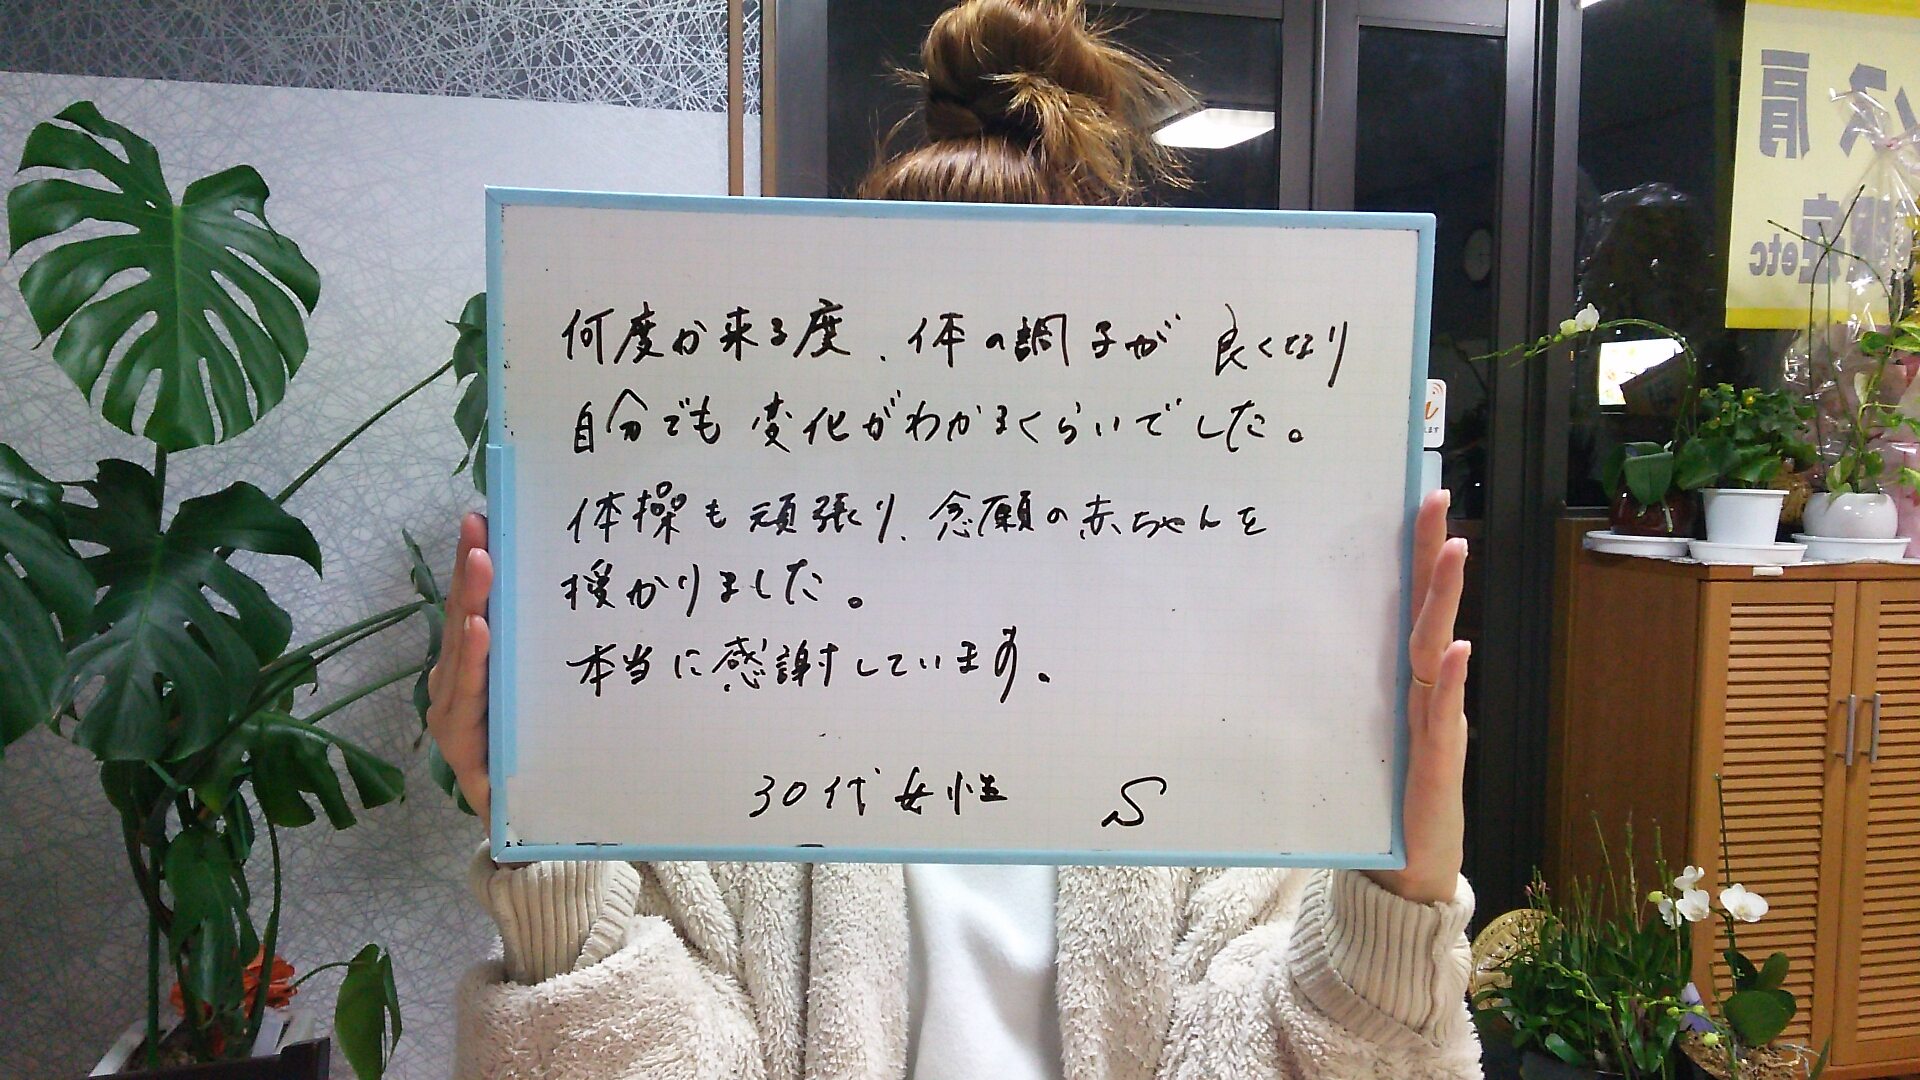 何度か来る度、体の調子が良くなり
自分でも変化がわかるくらいでした。
体操も頑張り、念願の赤ちゃんを
授かりました。
本当に感謝しています。
30代女性 S
肩
etc